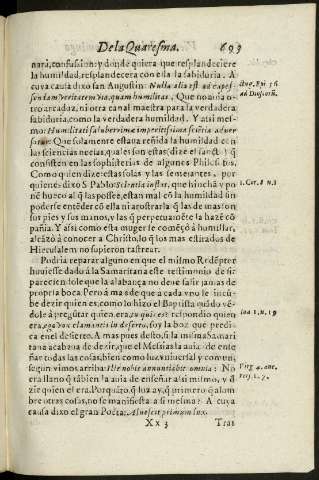 De la Quaresma. 693
nará, confusion: y donde quiera que resplandeciere
la humildad, resplandecera con ella la sabiduria. A
cuya causa dixo san Augustin: Nulla alia est ad capes-
sendam veritatem via, quam humilitas. Que no ay o-
tro arcaduz, ni otra canal maestra para la verdadera
sabiduria, como la verdadera humildad. Y assi mes-
mo: Humilitati saluberrimæ imperitissima sciētia aduer
Que solamente estaua reñida la humildad con
las sciencias necias, quales son estas (dize el sancto) q̄
consisten en las sophisterias de algunos Philosofos.
Como quien dize: estas solas y las semejantes, por
quienes dixo S. Pablo: Scientia inflat, que hincha y po
ne hueco al q̄ las possee, estan mal cō la humildad
poderse entēder cō ella ni arostrarla: q̄ las de mas son
sus pies y sus manos, y las q̄ perpetuamēte la hazē cō
pañia. Y assi como esta muger se comēçó á humillar,
alcāçó á conocer a Christo, lo q̄ los mas estirados de
Hierusalem no supieron rastrear.
Podria reparar alguno en que el mismo Redēptor
huuiesse dado á la Samaritana este testimonio de si
pareciendole que la alabança no deue salir jamas de
propria boca. Pero á mas de que a cada vno le incū-
be dezir quien es, como lo hizo el Baptista quādo vē-
dole á pregūtar quien era, tu quis es? respondio quien
era, ego vox clamantis in deserto, soy la boz que predi-
ca en el desierto. A mas pues desto, si la misma Sama-
ritana acabaua de dezir, que el Messias la auia de ense
ñar todas las cosas, bien como luz vniuersal y comun,
segun vimos arriba: Ille nobis annuntiabit omnia: No
era llano q̄ tābien la auia de enseñar á si mismo, y á
dezir quien el era. Porq̄ quiro, q̄ luz ay, q̄ primero q̄ alum
bre otras cosas, no se manifieste a si mesma? A cuya
causa dixo el gran Poeta: primam lux.
Xx 3 Tras
ad Dioscorū.
1. Cor. 8. N. 1
Ioa 1. N. 19
Virg 4.